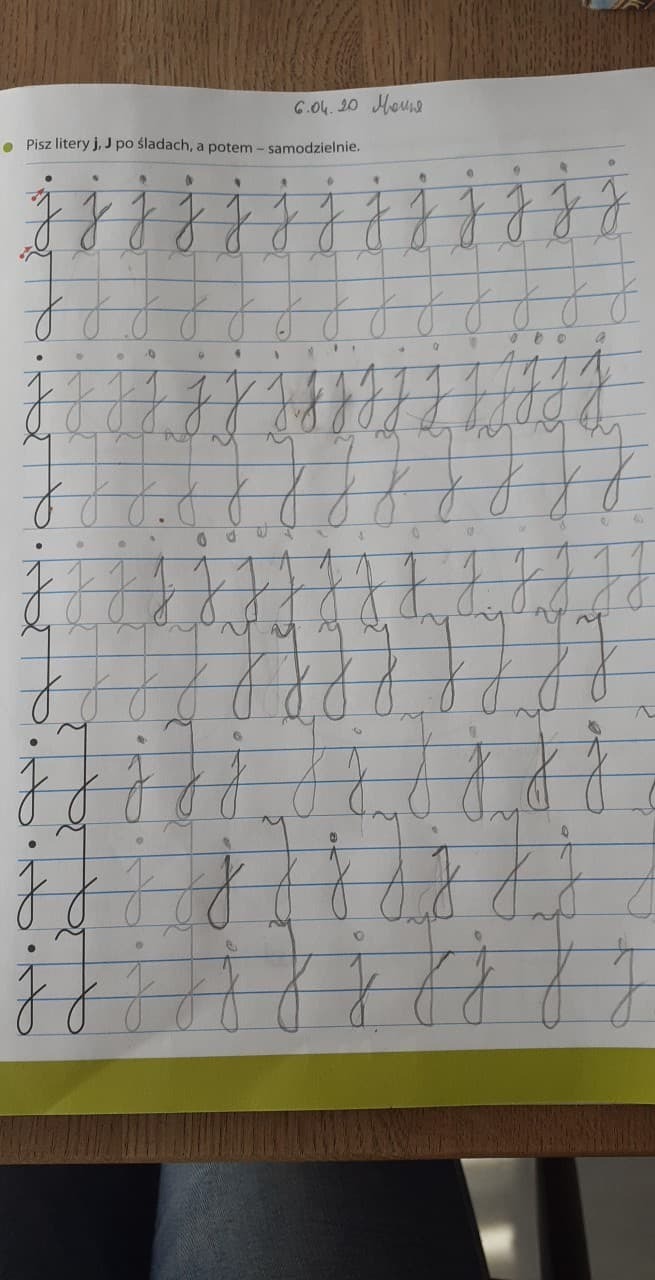 6.04.20
Pisz litery j, J po śladach, a potem – samodzielnie.
j j j j j j j j j j j j j
J J J J J J J J J J J J J
j j j j j j j j j j j j j j j j j
J J J J J J J J J J J J
j j j j j j j j j j j j j j j
J J J J J J J J J J J J
j J j J j J j J j J j
j J j J j J j J j J j
j J j J j J j J j J j